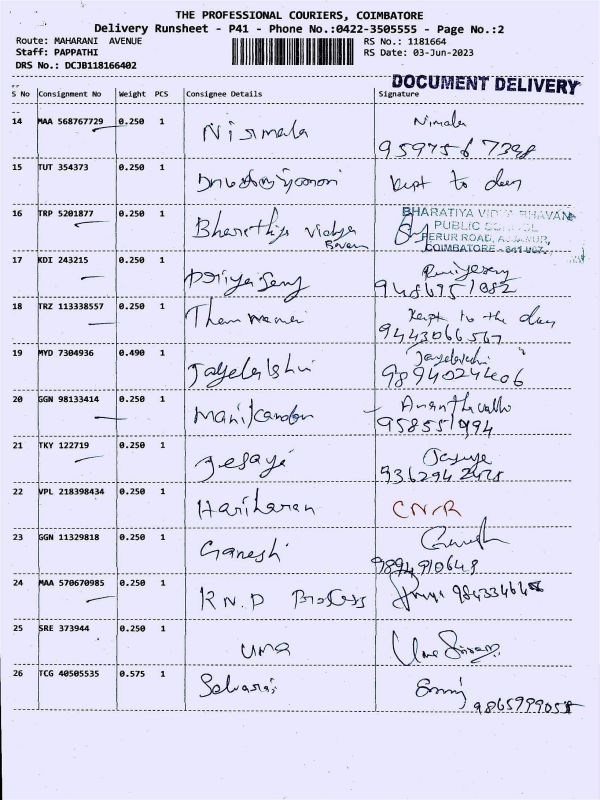 THE PROFESSIONAL COURIERS, COIMBATORE
Delivery Runsheet - P41 - Phone No.:0422-3505555 - Page No.:2
Route: MAHARANI AVENUE
RS No.: 1181664
Staff: PAPPATHI
RS Date: 03-Jun-2023
DRS No.: DCJB118166402
DOCUMENT DELIVERY
S No Consignment No Weight PCS Consignee Details Signature
14 MAA 568767729 0.250 1 Nirmala Nirmala
15 TUT 354373 0.250 1 kept to door
16 TRP 5201877 0.250 1 Bharathiya Vidya Bavan
BHARATIYA VIDYA BHAVAN
PUBLIC SCHOOL
PERUR ROAD, AJJANUR,
COIMBATORE - 641 007.
17 KDI 243215 0.250 1
18 TRZ 113338557 0.250 1 kept to the door
9443066567
19 MYD 7304936 0.490 1
9894024406
20 GGN 98133414 0.250 1 Manikandan
21 TKY 122719 0.250 1
22 VPL 218398434 0.250 1 Hariharan CN/R
23 GGN 11329818 0.250 1 Ganesh Ganesh
9894910648
24 MAA 570670985 0.250 1 R.N.D Process
25 SRE 373944 0.250 1 uma
26 TCG 40505535 0.575 1 Selvaraj